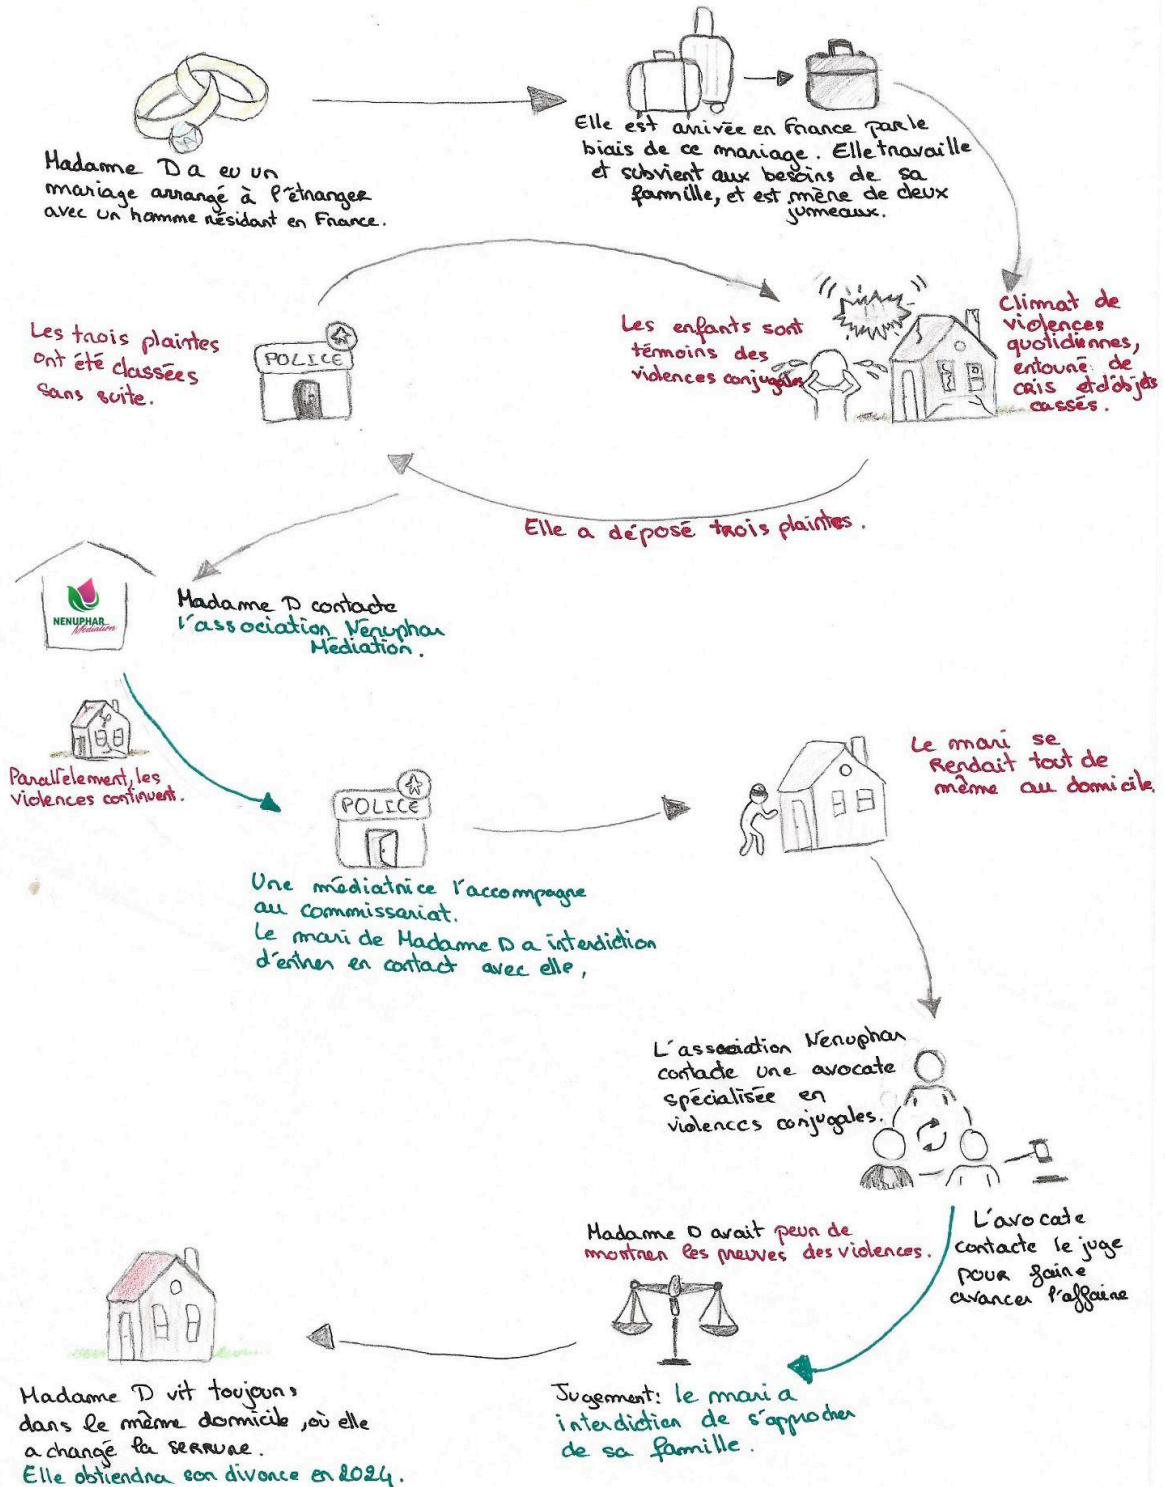 Madame D a eu un
mariage arrangé à l'étranger
avec un homme résidant en France.
Elle est arrivée en France par le
biais de ce mariage. Elle travaille
et subvient aux besoins de sa
famille, et est mère de deux
jumeaux.
Climat de
violences
quotidiennes,
entouré de
cris et d'objets
cassés.
Les enfants sont
témoins des
violences conjugales
Elle a déposé trois plaintes.
POLICE
Les trois plaintes
ont été classées
sans suite.
NENUPHAR
Médiation
Madame D contacte
l'association Nénuphar
Médiation.
Parallèlement, les
violences continuent.
POLICE
Une médiatrice l'accompagne
au commissariat.
Le mari de Madame D a interdiction
d'entrer en contact avec elle,
Le mari se
rendait tout de
même au domicile.
L'association Nénuphar
contacte une avocate
spécialisée en
violences conjugales.
L'avocate
contacte le juge
pour faire
avancer l'affaire
Madame D avait peur de
montrer les preuves des violences.
Jugement: le mari a
interdiction de s'approcher
de sa famille.
Madame D vit toujours
dans le même domicile, où elle
a changé la serrure.
Elle obtiendra son divorce en 2024.